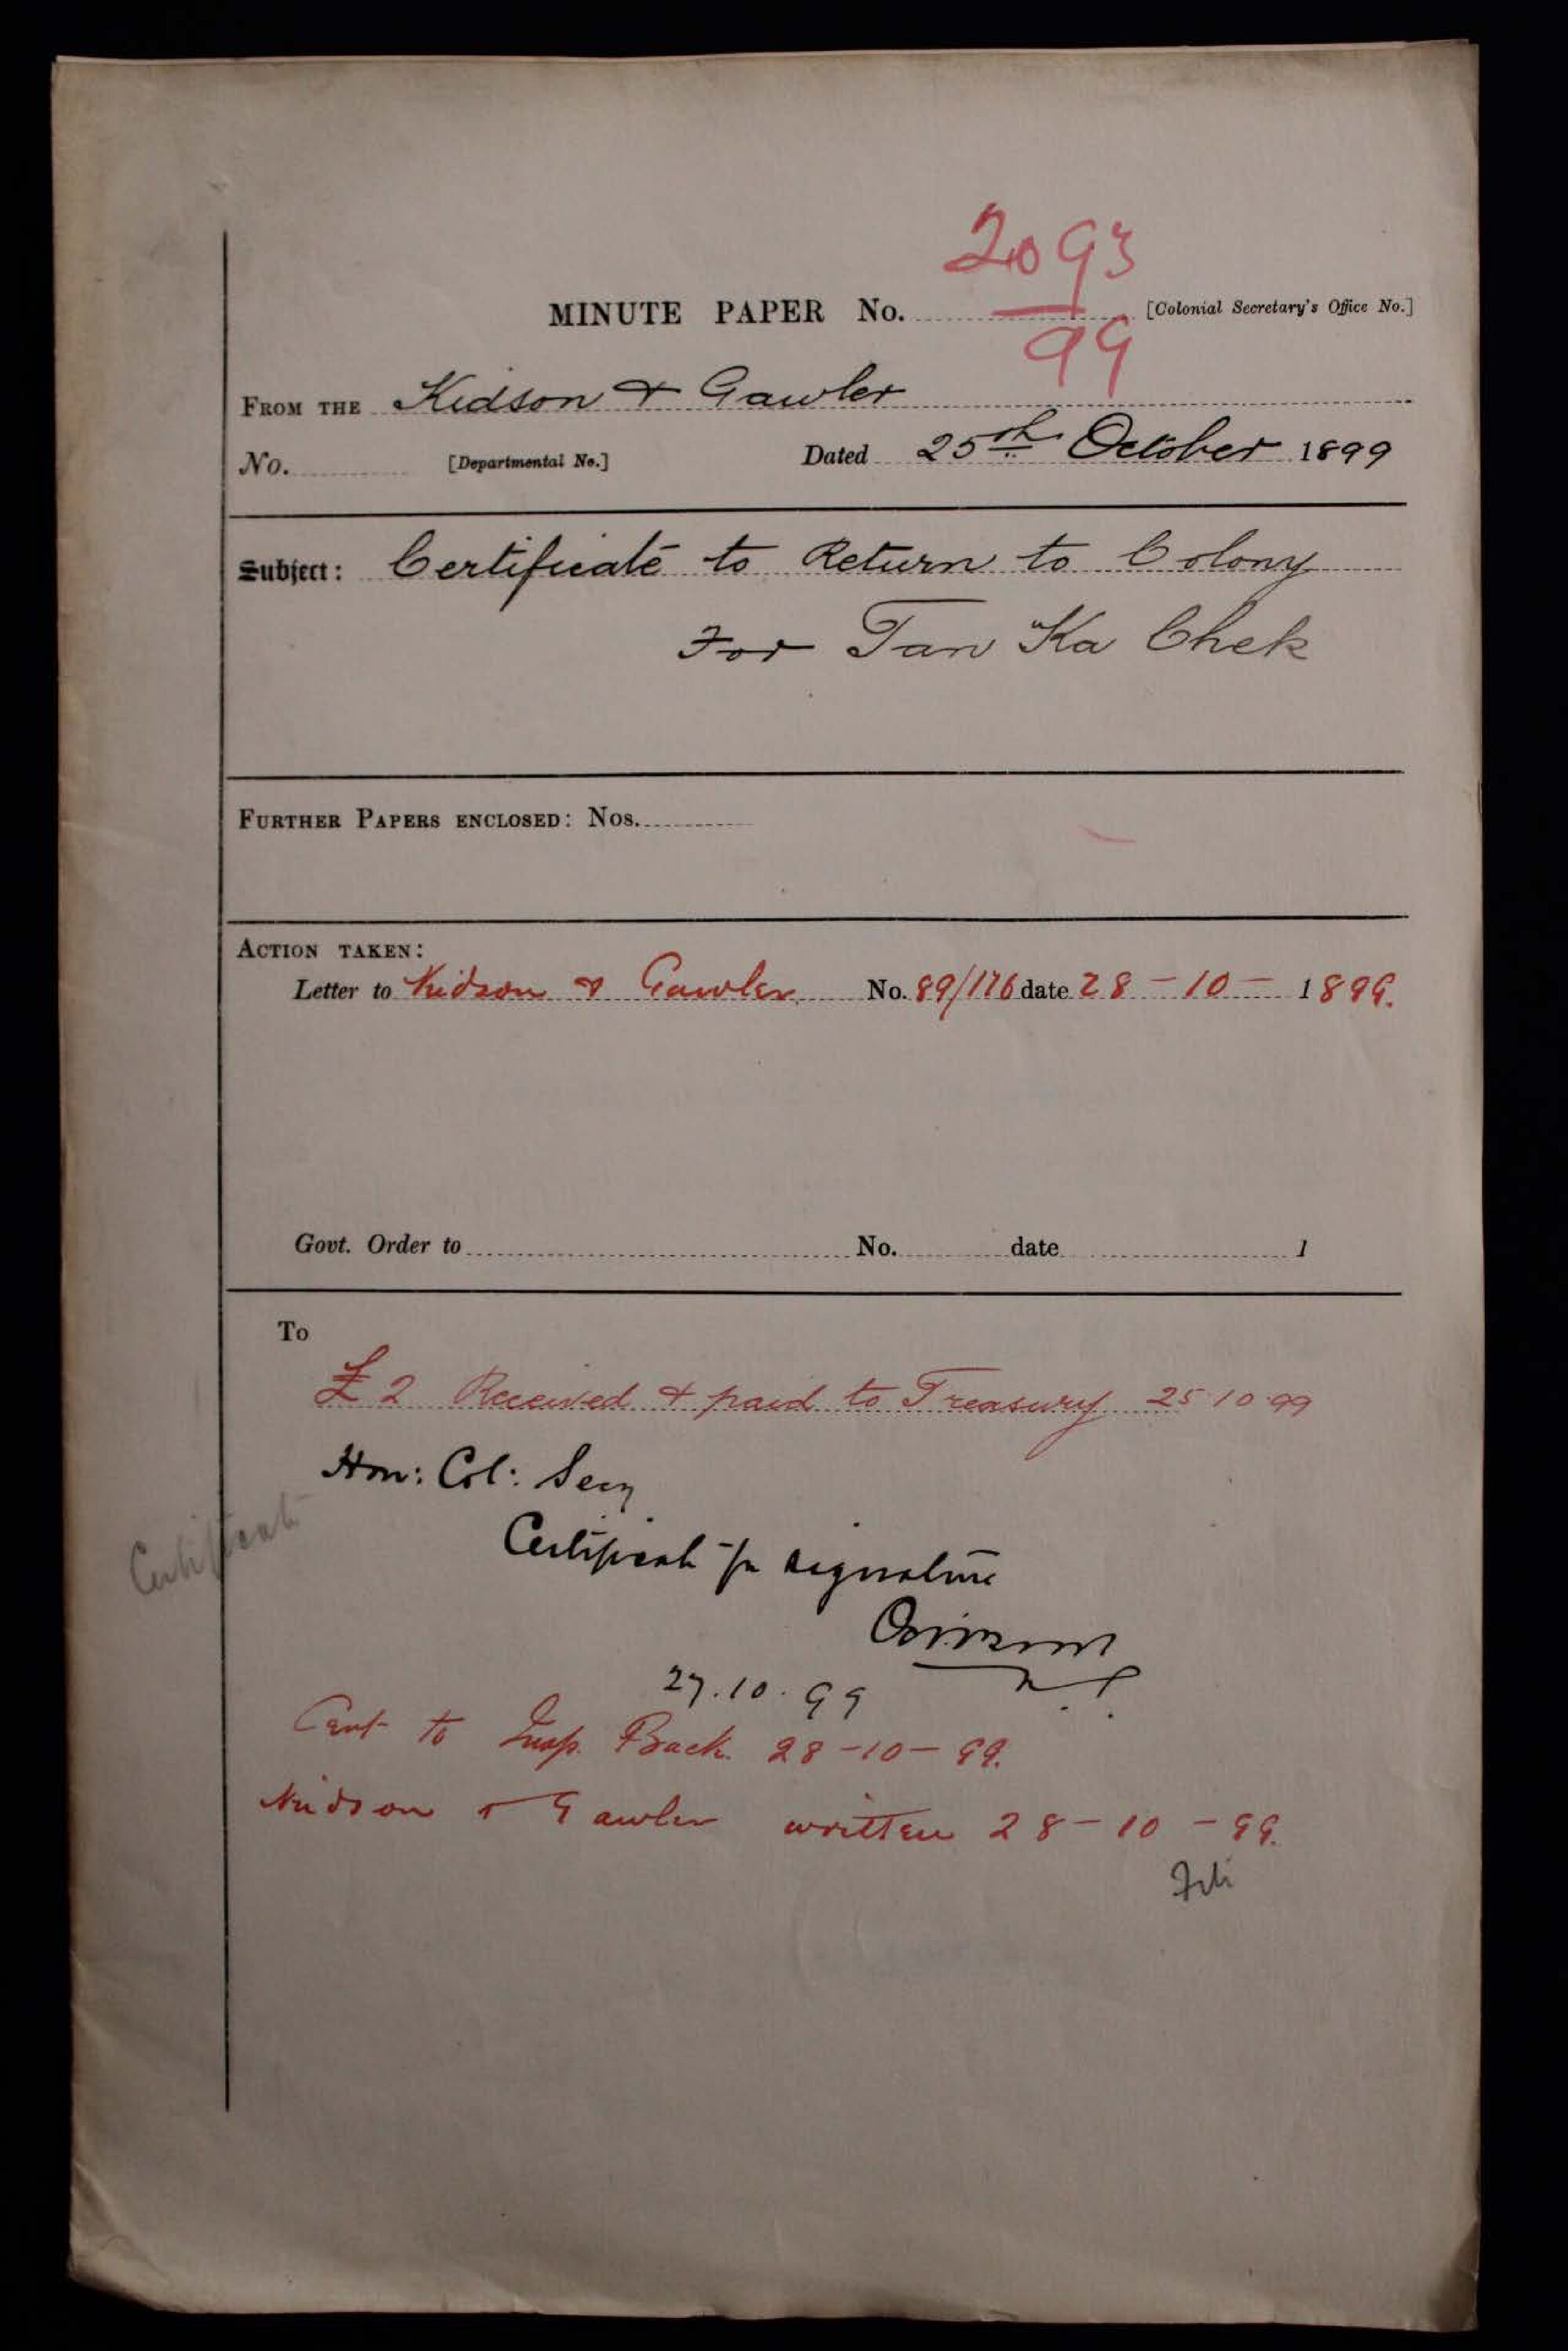 2093
99
MINUTE PAPER No. [Colonial Secretary's Office No.]
FROM THE Kidson & Gawler
No. [Departmental No.] Dated 25th October 1899
Subject: Certificate to Return to Colony
For Tan Ka Chek
FURTHER PAPERS ENCLOSED: Nos.
ACTION TAKEN:
Letter to Kidson & Gawler No. 89/116 date 28-10-1899.
Govt. Order to No. date 1
To
£2 Received & paid to Treasury 25.10.99
Hon: Col: Secy
Certificate
Certificate for signature
27.10.99
Cert to Insp. Back. 28-10-99.
Kidson & Gawler written 28-10-99.